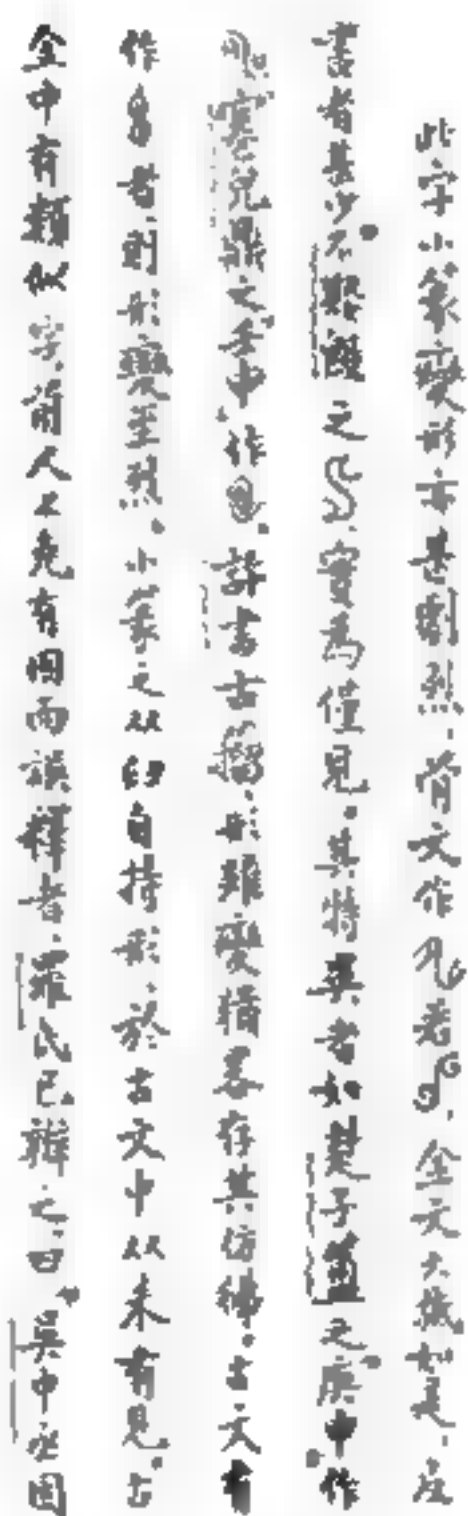 此字小篆變形亦甚劇烈，骨文作，金文大抵如是，反
書者甚少。不之，實為僅見。其特異者如楚子簠之庚申作
寒兒鼎之壬申作，許書古籀，形雖變猶畧存其彷彿。古文有
作者，則形變至烈。小篆之从臼自持形，於古文中从未有見。古
金中有類似字，前人不免有因而誤釋者，羅氏已辯之，曰：吳中丞因